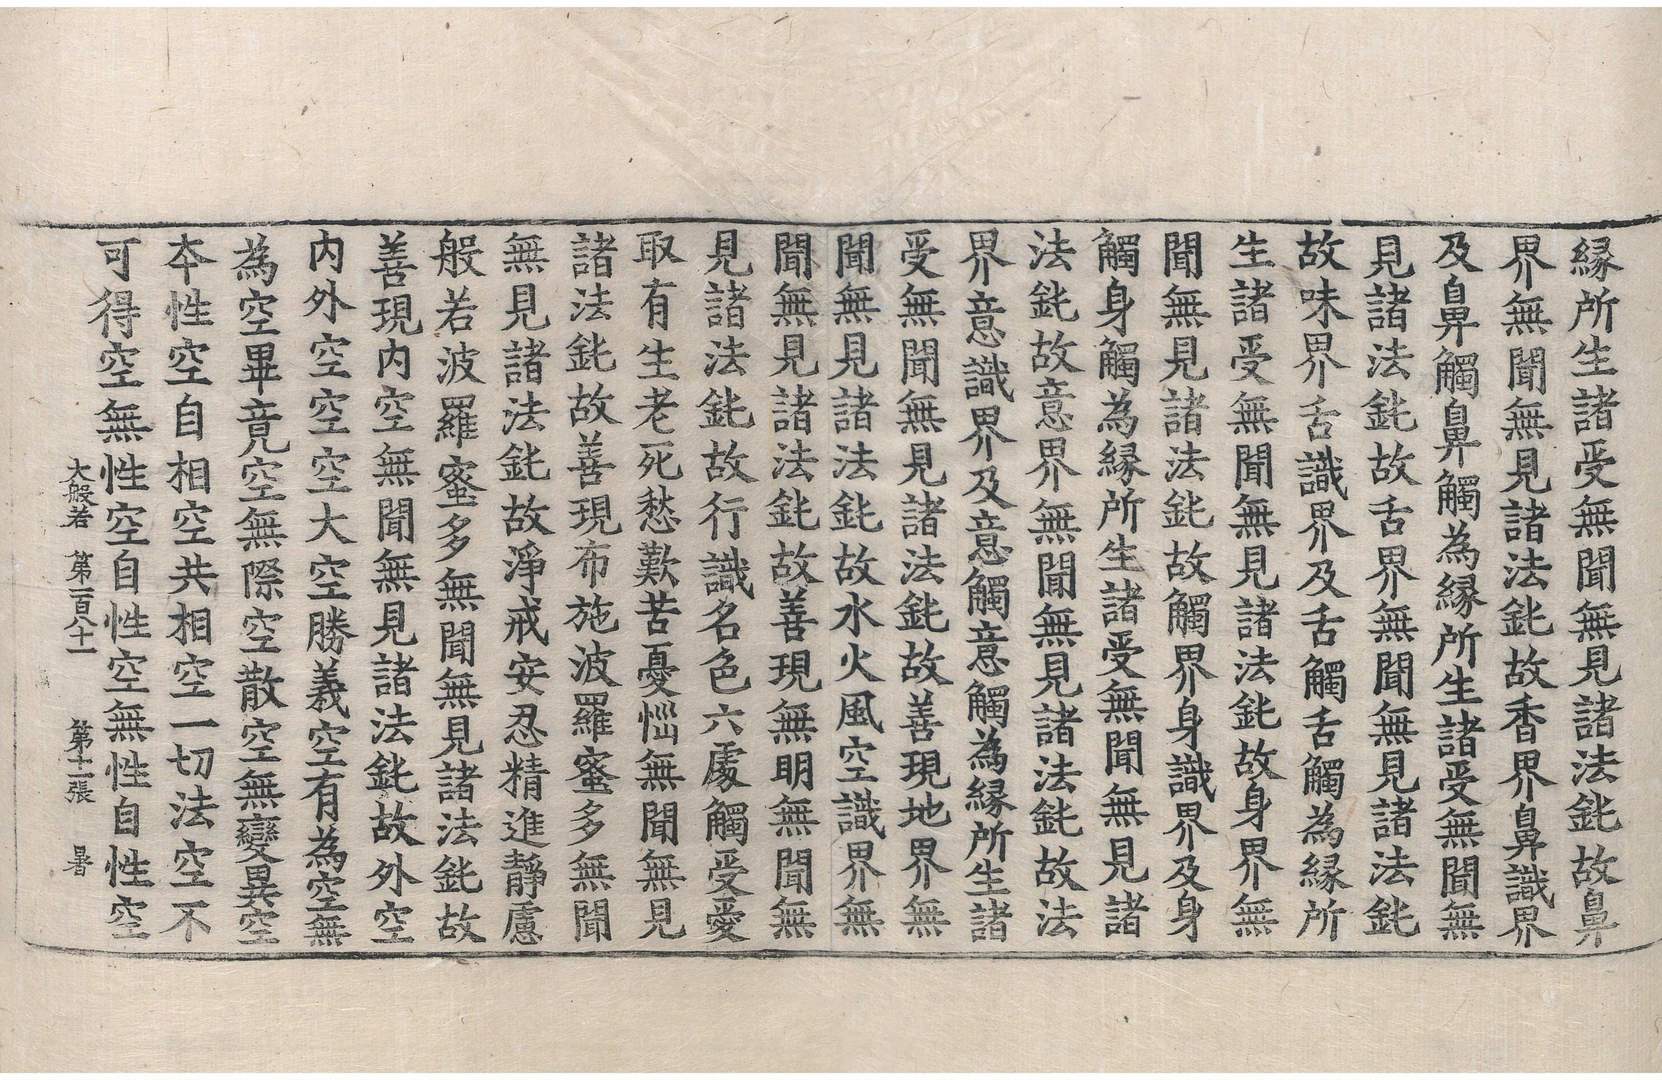 縁所生諸受無聞無見諸法鈍故鼻
界無聞無見諸法鈍故香界鼻識界
及鼻觸鼻觸為縁所生諸受無聞無
見諸法鈍故舌界無聞無見諸法鈍
故味界舌識界及舌觸舌觸為縁所
生諸受無聞無見諸法鈍故身界無
聞無見諸法鈍故觸界身識界及身
觸身觸為縁所生諸受無聞無見諸
法鈍故意界無聞無見諸法鈍故法
界意識界及意觸意觸為縁所生諸
受無聞無見諸法鈍故善現地界無
聞無見諸法鈍故水火風空識界無
聞無見諸法鈍故善現無明無聞無
見諸法鈍故行識名色六處觸受愛
取有生老死愁歎苦憂惱無聞無見
諸法鈍故善現布施波羅蜜多無聞
無見諸法鈍故淨戒安忍精進靜慮
般若波羅蜜多無聞無見諸法鈍故
善現内空無聞無見諸法鈍故外空
内外空空空大空勝義空有為空無
為空畢竟空無際空散空無變異空
本性空自相空共相空一切法空不
可得空無性空自性空無性自性空
大般若 第一百八十一 第十一張 暑